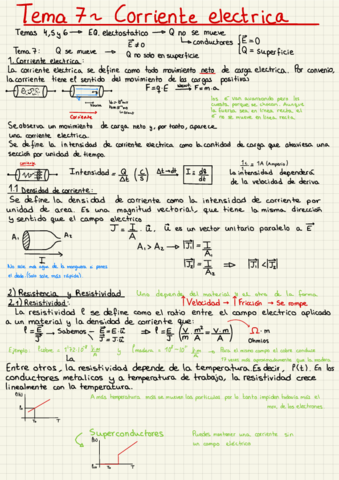 Tema 7~ Corriente electrica
Temas 4,5 y 6 → EQ. electostatico → Q no se mueve
E≠0
conductores {E=0
Tema 7: Q se mueve → Q no solo en superficie
{Q = Superficie
1. Corriente electrica:
La corriente electrica se define como todo movimiento neto de carga electrica. Por convenio,
la corriente tiene el sentido del movimiento de las cargas positivas
F=q·E F=m·a
Corriente
los e⁻ van avanzando pero les
cuesta, porque se chocan. Aunque
la fuerza sea en linea recta, el
e⁻ no se mueve en linea recta.
Se observa un movimiento de carga neto y, por tanto, aparece
una corriente electrica.
Se define la intensidad de corriente electrica como la cantidad de carga que atraviesa una
sección por unidad de tiempo.
Intensidad = Q/Δt (C/s) Δt→dt I = dQ/dt
1 C/s = 1A (Ampere)
la intensidad dependerá
de la velocidad de deriva
1.1 Densidad de corriente:
Se define la densidad de corriente como la intensidad de corriente por
unidad de area. Es una magnitud vectorial, que tiene la misma dirección
y sentido que el campo electrico
J = I/A · û. û es un vector unitario paralelo a E
A₁ A₂ I
A₁ > A₂ → |J₁| = I/A₁
|J₂| = I/A₂ ⇒ |J₁| < |J₂|
No sale mas agua de la manguera si pones
el dedo (Solo sale más rapido).
2) Resistencia y Resistividad
Una depende del material y la otra de la forma
2.1) Resistividad:
↑Velocidad → ↑Fricción → Se rompe.
La resistividad ρ se define como el ratio entre el campo electrico aplicado
a un material y la densidad de corriente que:
ρ = E/J → Sabemos E = E·û J = J·û ⇒ ρ = E/J (V/m m²/A = V·m/A) Ω·m
Ohmios
La,
Entre otros, la resistividad depende de la temperatura. Es decir, ρ(t). En los
conductores metalicos y a temperatura de trabajo, la resistividad crece
linealmente con la temperatura.
A más temperatura más se mueven las particulas por lo tanto impiden todavia más el
mov. de los electrones
Superconductores
Pueden mantener una corriente sin
un campo electrico